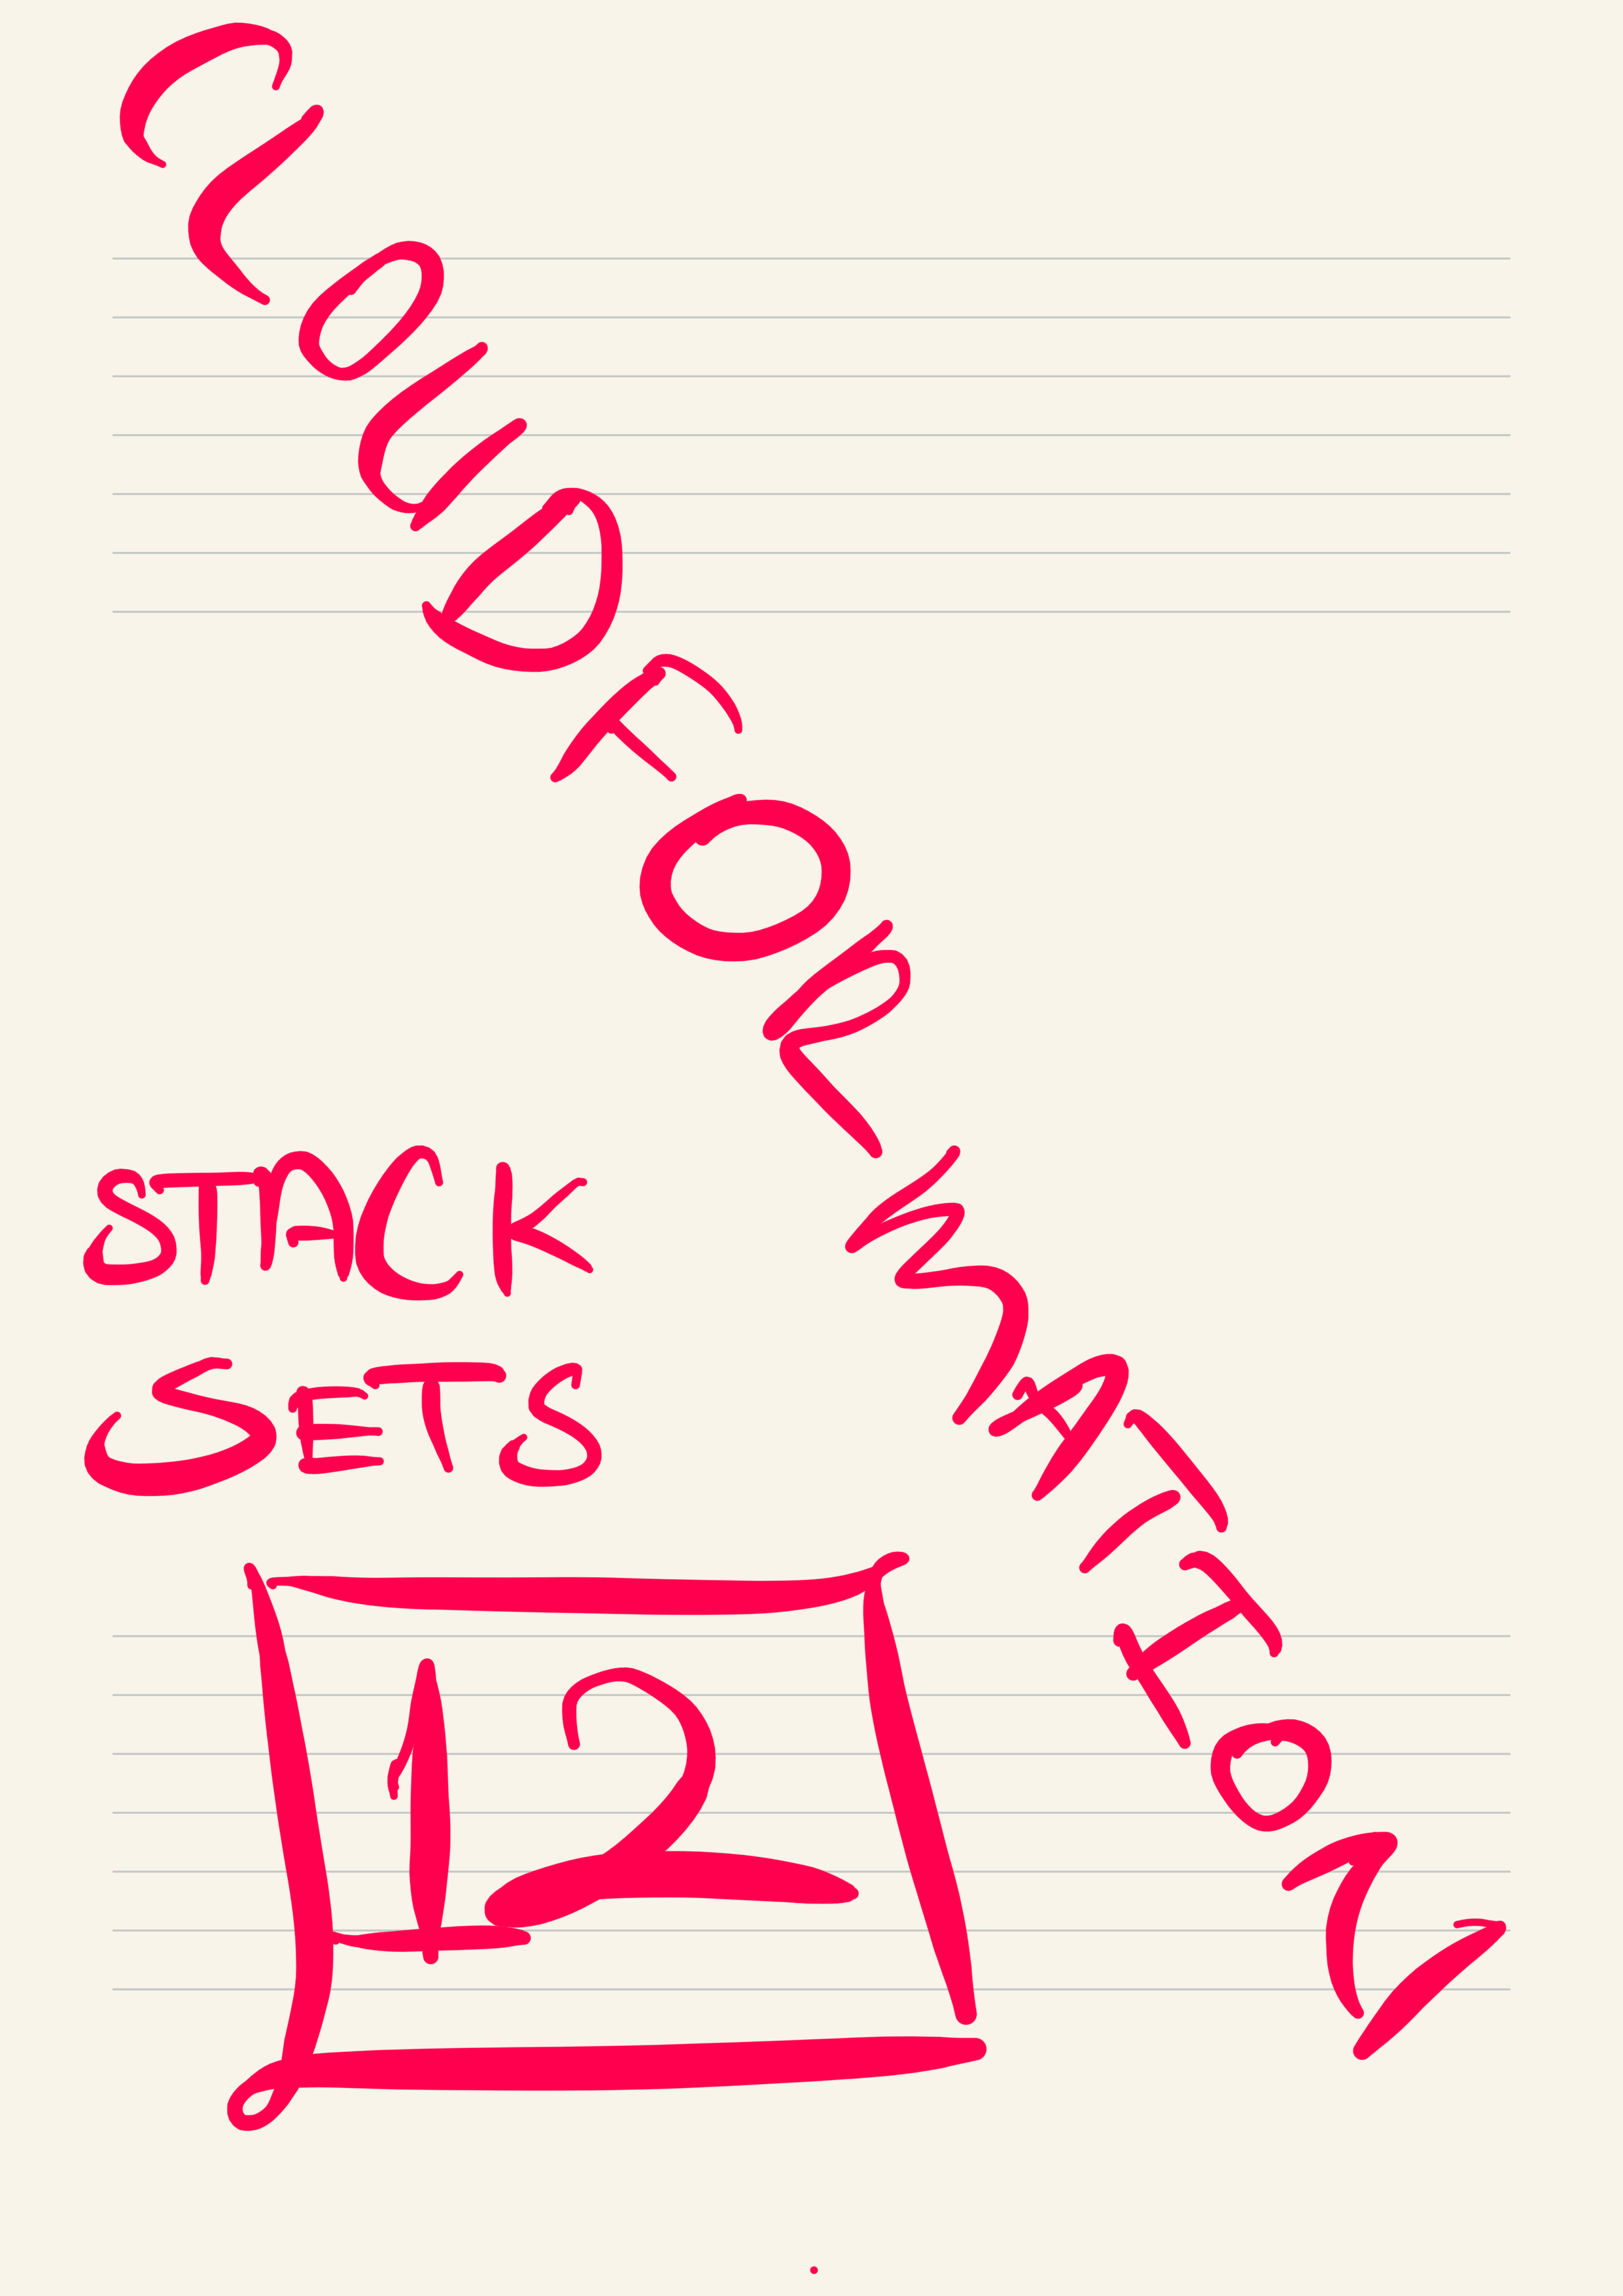 CLOUDFORMATION
STACK
SETS
12